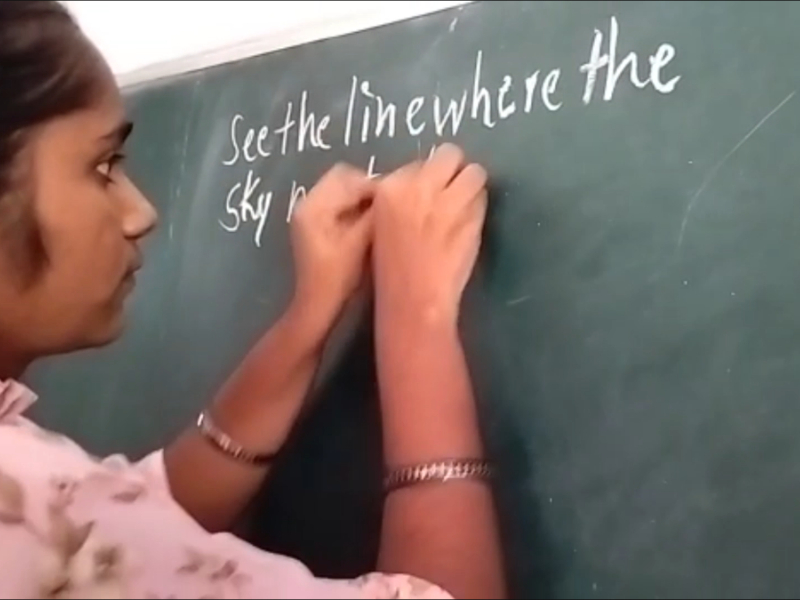 See the line where the
sky